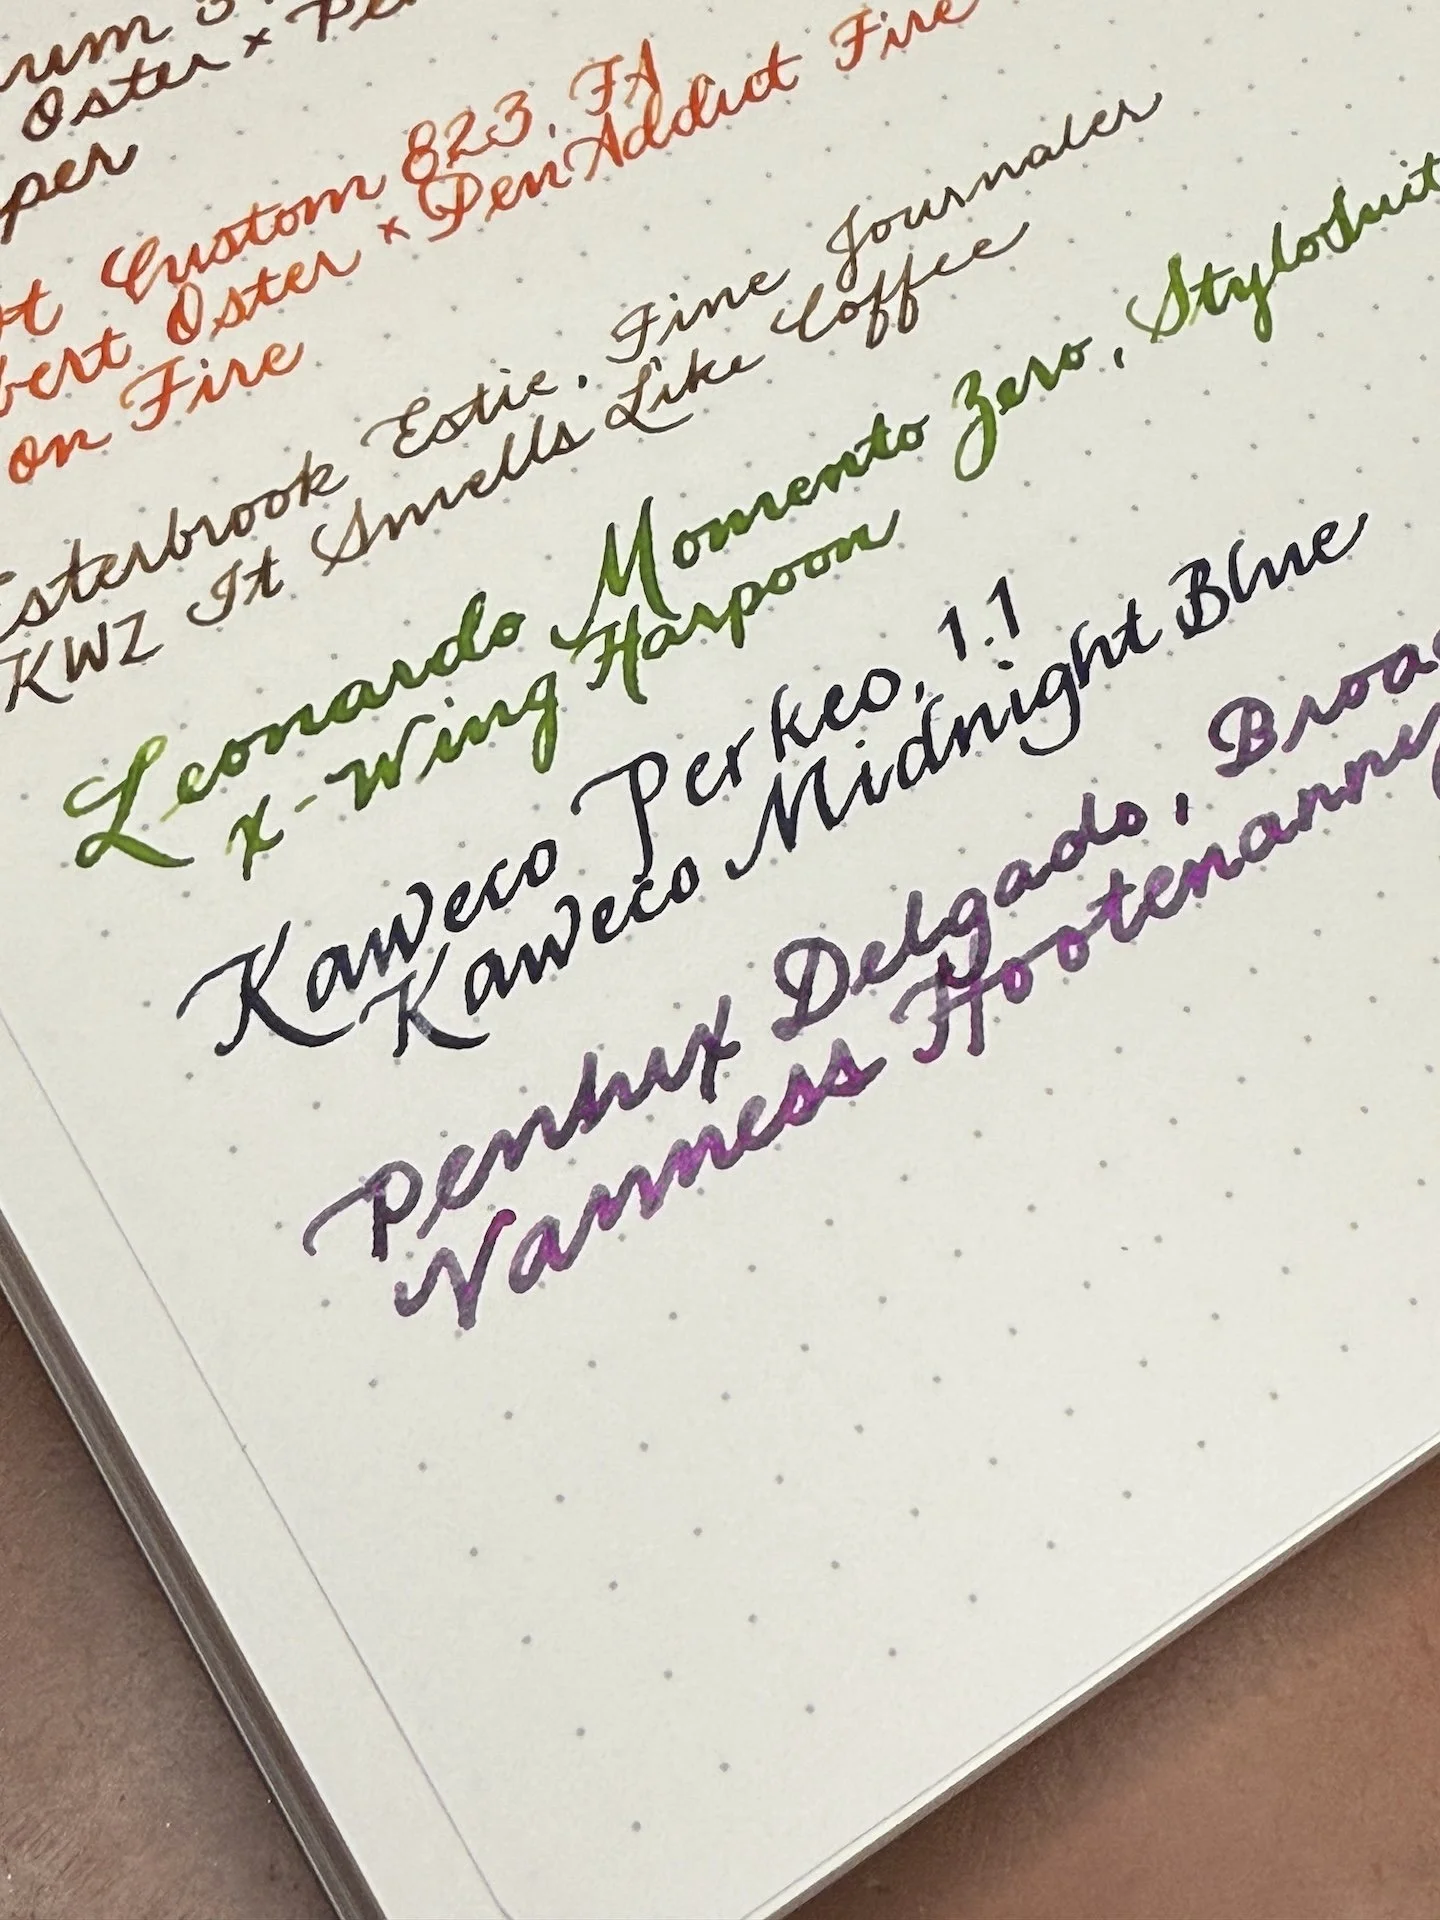 Oster x
Custom 823, FA
Oster x PenAddict Fire
on Fire
Esterbrook Estie, Fine Journaler
KWZ It Smells Like Coffee
Leonardo Momento Zero, StyloSuit
X-Wing Harpoon
Kaweco Perkeo, 1.1
Kaweco Midnight Blue
Penhux Delgado, Broad
Vanness Hootenanny